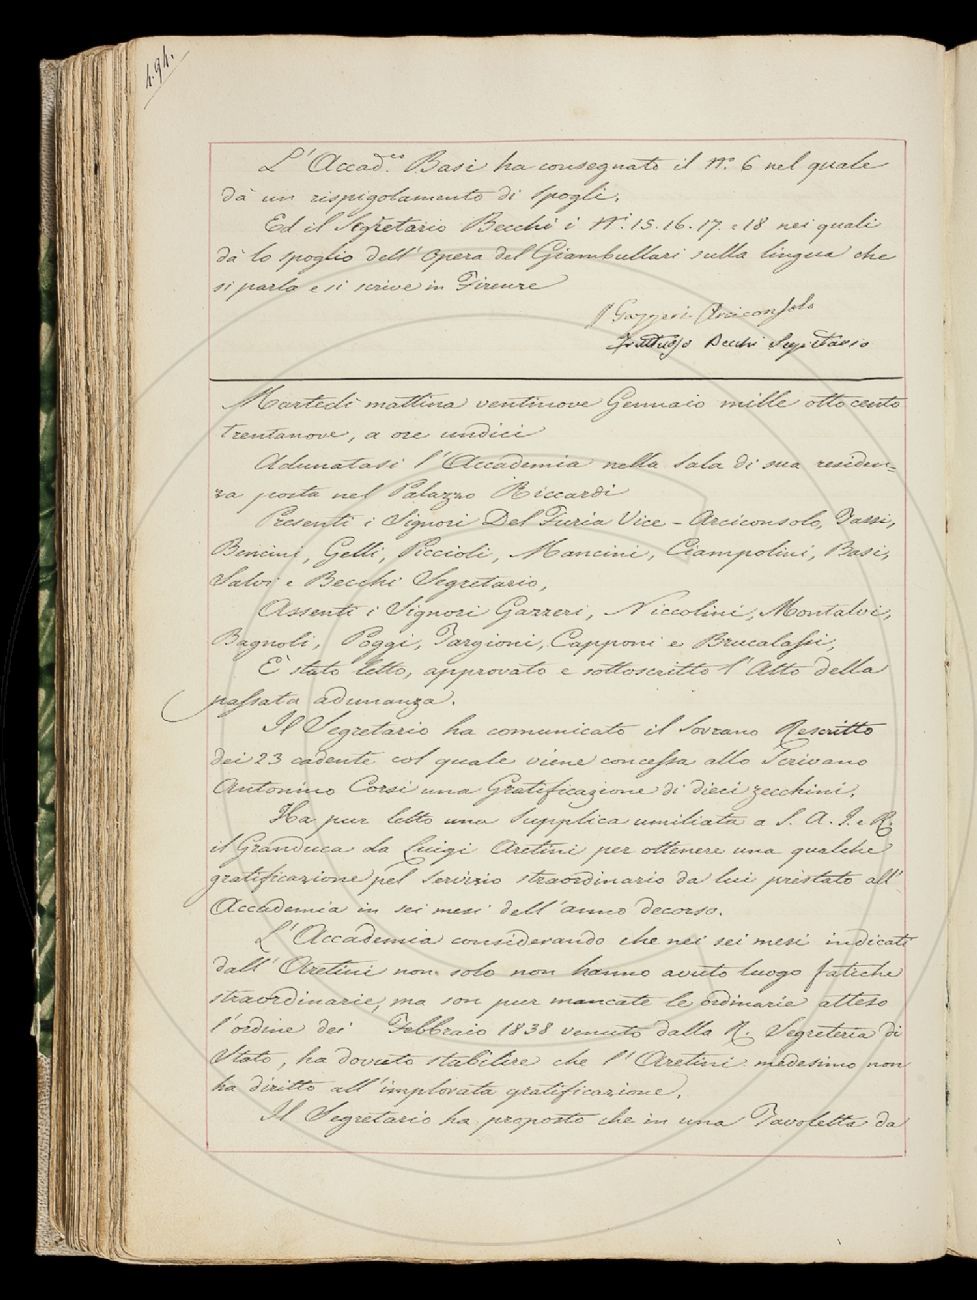 494.
L'Accad.co Basi ha consegnato il N.o 6 nel quale
dà un rispigolamento di spogli.
Ed il Segretario Becchi i N.i 15. 16. 17. e 18 nei quali
dà lo spoglio dell'opera del Giambullari sulla lingua che
si parla e si scrive in Firenze
Gazzeri Arciconsolo
Fruttuoso Becchi Segretario
Martedì mattina ventinove Gennaio mille ottocento
trentanove, a ore undici
Adunatasi l'Accademia nella sala di sua residen=
za posta nel Palazzo Riccardi
Presenti i Signori Del Furia Vice-Arciconsolo, Tassi,
Bencini, Gelli, Piccioli, Mancini, Ciampolini, Basi,
Salvi e Becchi Segretario,
Assenti i Signori Gazzeri, Niccolini, Montalvi,
Bagnoli, Poggi, Targioni, Capponi e Brucalassi,
È stato letto, approvato e sottoscritto l'Atto della
passata adunanza.
Il Segretario ha comunicato il Sovrano Rescritto
dei 23 cadente col quale viene concessa allo Scrivano
Antonino Corsi una Gratificazione di dieci zecchini.
Ha pur letto una supplica umiliata a S. A. I. e R.
il Granduca da Luigi Aretini per ottenere una qualche
gratificazione pel servizio straordinario da lui prestato all'
Accademia in sei mesi dell'anno decorso.
L'Accademia considerando che nei sei mesi indicati
dall'Aretini non solo non hanno avuto luogo fatiche
straordinarie, ma son pur mancate le ordinarie atteso
l'ordine dei Febbraio 1838 venuto dalla R. Segreteria di
Stato, ha dovuto stabilire che l'Aretini medesimo non
ha diritto all'implorata gratificazione.
Il Segretario ha proposto che in una Tavoletta da